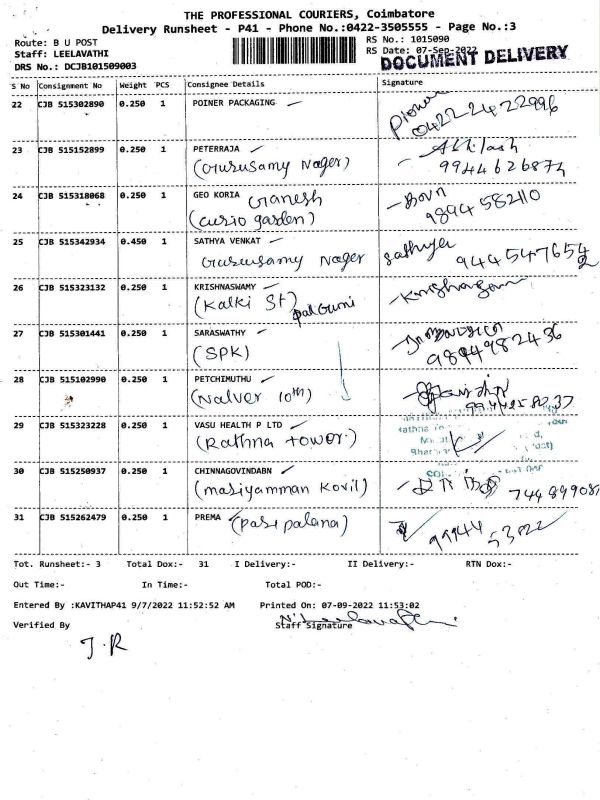 THE PROFESSIONAL COURIERS, Coimbatore
Delivery Runsheet - P41 - Phone No.:0422-3505555 - Page No.:3
Route: B U POST
RS No.: 1015090
Staff: LEELAVATHI
RS Date: 07-Sep-2022
DRS No.: DCJB101509003
DOCUMENT DELIVERY
S No Consignment No Weight PCS Consignee Details Signature
22 CJB 515302890 0.250 1 POINER PACKAGING
0422-2422996
23 CJB 515152899 0.250 1 PETERRAJA
(Gurusamy Nager)
24 CJB 515318068 0.250 1 GEO KORIA Ganesh
(curio garden) 9894 582110
25 CJB 515342934 0.450 1 SATHYA VENKAT
Gurusamy Nager Sathya
26 CJB 515323132 0.250 1 KRISHNASWAMY
(Kalki St)
27 CJB 515301441 0.250 1 SARASWATHY
(SPK) 9894982436
28 CJB 515102990 0.250 1 PETCHIMUTHU
(Nalver 10th)
29 CJB 515323228 0.250 1 VASU HEALTH P LTD
(Rathna tower)
30 CJB 515250937 0.250 1 CHINNAGOVINDABN
(masiyamman Kovil)
31 CJB 515262479 0.250 1 PREMA (pasi palana)
99944 53822
Tot. Runsheet:- 3 Total Dox:- 31 I Delivery:- II Delivery:- RTN Dox:-
Out Time:- In Time:- Total POD:-
Entered By :KAVITHAP41 9/7/2022 11:52:52 AM Printed On: 07-09-2022 11:53:02
Verified By Staff Signature
J.R